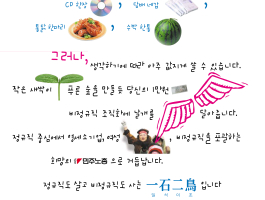 CD 한장 , 담배 네갑 ,
통닭 한마리 , 수박 한통
그러나, 생각하기에 따라 아주 값지게 쓸 수 있습니다.
작은 새싹이 푸른 숲을 만들듯 당신의 1만원
비정규직 조직화에 날개를 달아줍니다.
정규직 중심에서 영세소기업, 여성 , 비정규직을 포괄하는
희망의 민주노총 으로 거듭납니다.
정규직도 살고 비정규직도 사는 一石二鳥 입니다
일석이조